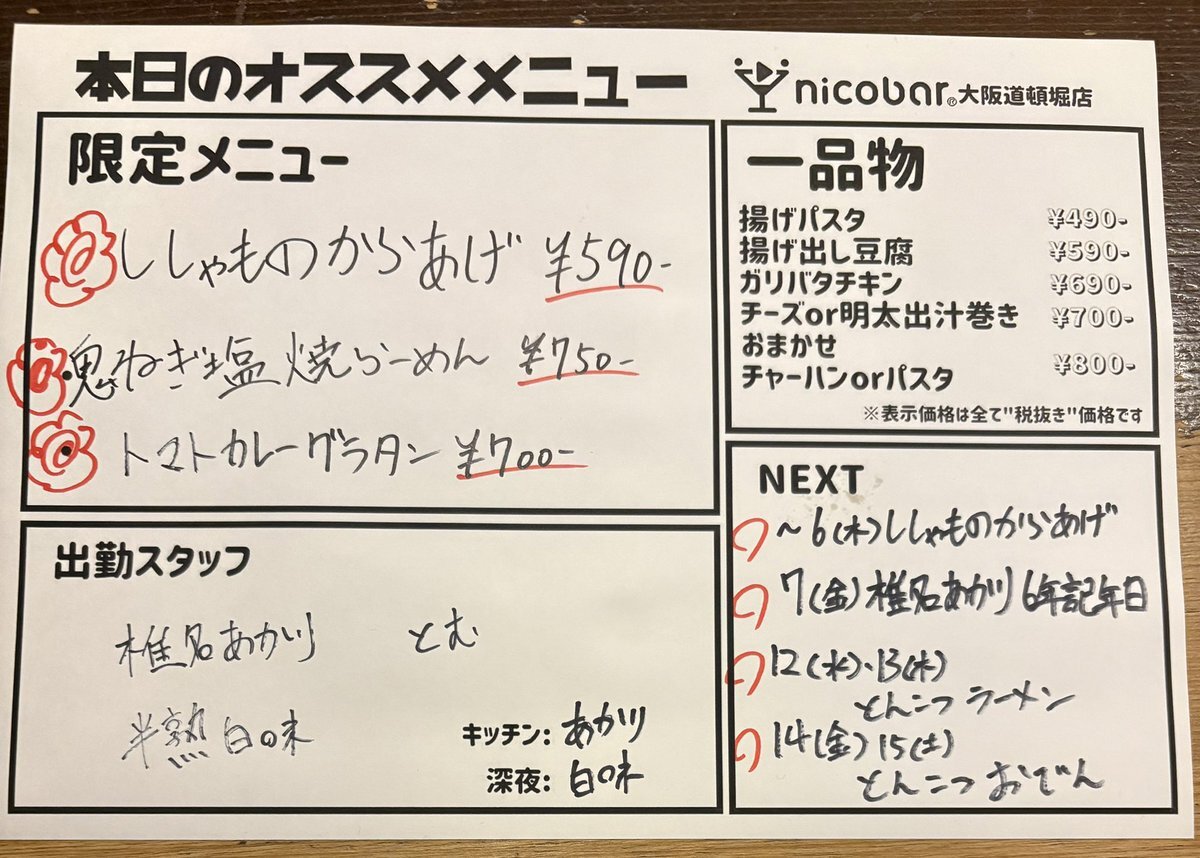 本日のオススメメニュー
nicobar® 大阪道頓堀店
限定メニュー
ししゃものからあげ ¥590-
・鬼ねぎ塩焼らーめん ¥750-
・トマトカレーグラタン ¥700-
一品物
揚げパスタ ¥490-
揚げ出し豆腐 ¥590-
ガリバタチキン ¥690-
チーズor明太出汁巻き ¥700-
おまかせ
チャーハンorパスタ ¥800-
※表示価格は全て"税抜き"価格です
出勤スタッフ
椎名あかり とむ
半熟白口味
キッチン: あかり
深夜: 白口味
NEXT
～6(木)ししゃものからあげ
7(金)椎名あかり6年記年日
12(水)・13(木)
とんこつラーメン
14(金)15(土)
とんこつおでん